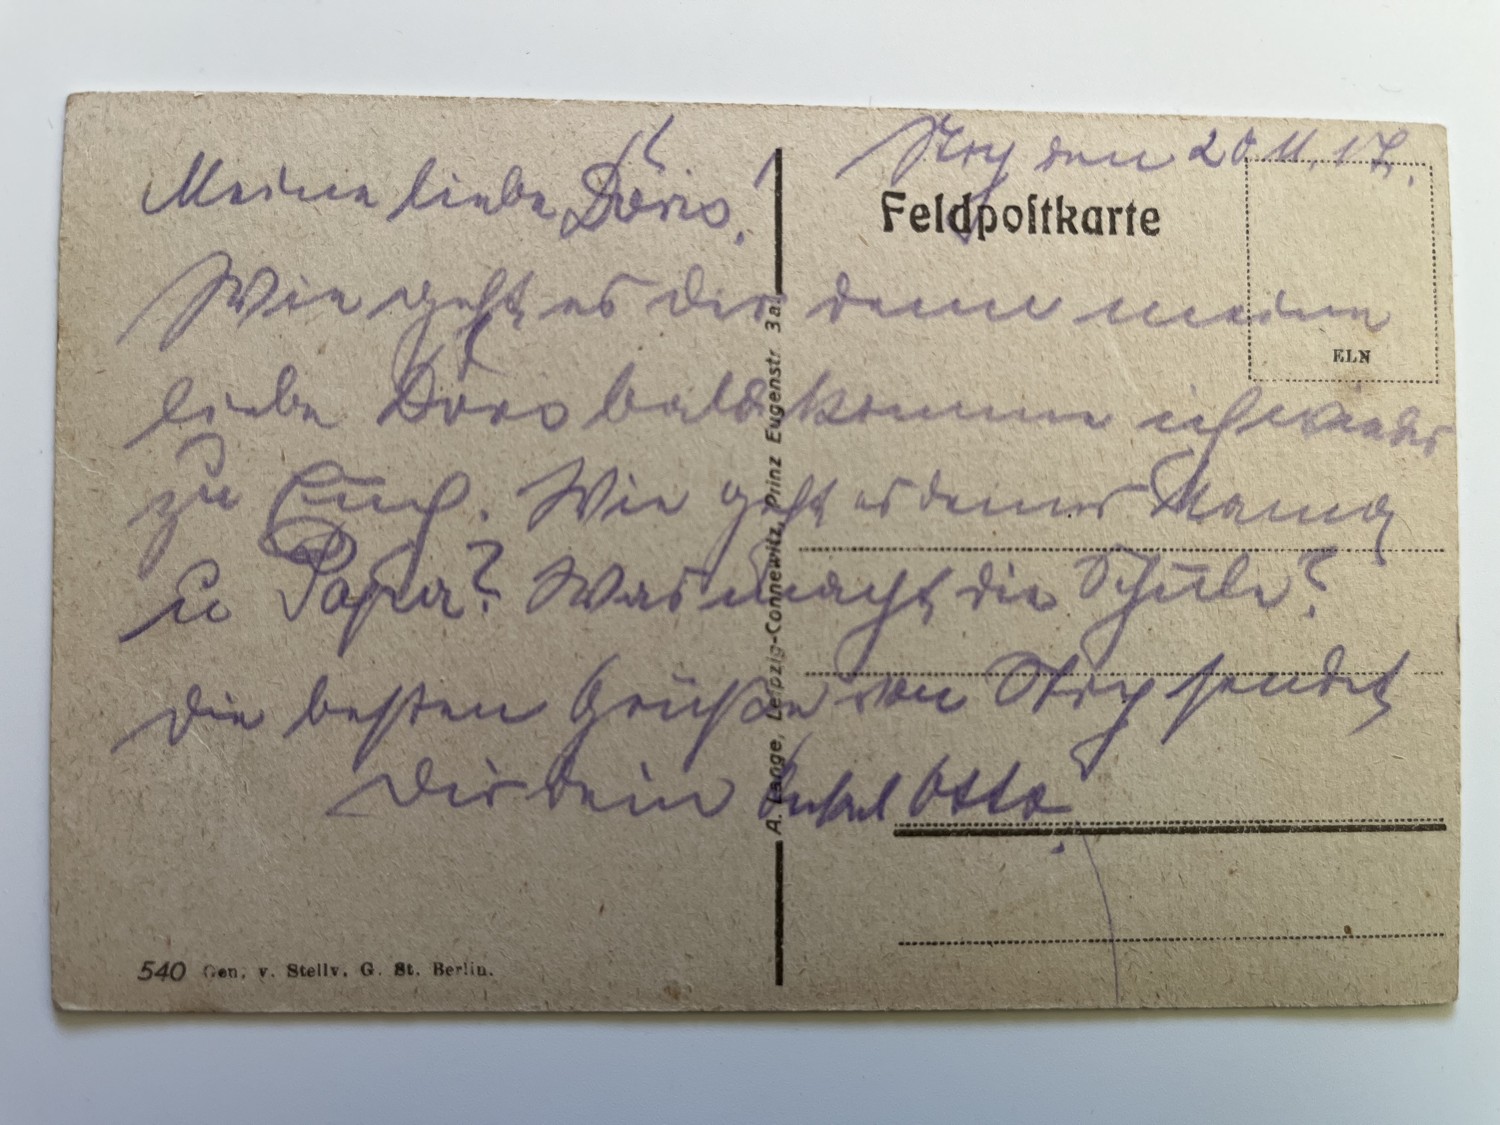 Stry den 20.11.17.
Meine liebe Döris!
Feldpostkarte
Wie geht es dir denn meine
ELN
liebe Döris bald komme ich wieder
zu Euch. Wie geht es deiner Mama
u Papa? Was macht die Schule?
Die besten Grüße von Stry sendet
Dir dein Onkel Otto.
A. Lange, Leipzig-Connewitz, Prinz Eugenstr. 3a.
540 Gen. v. Stellv. G. St. Berlin.